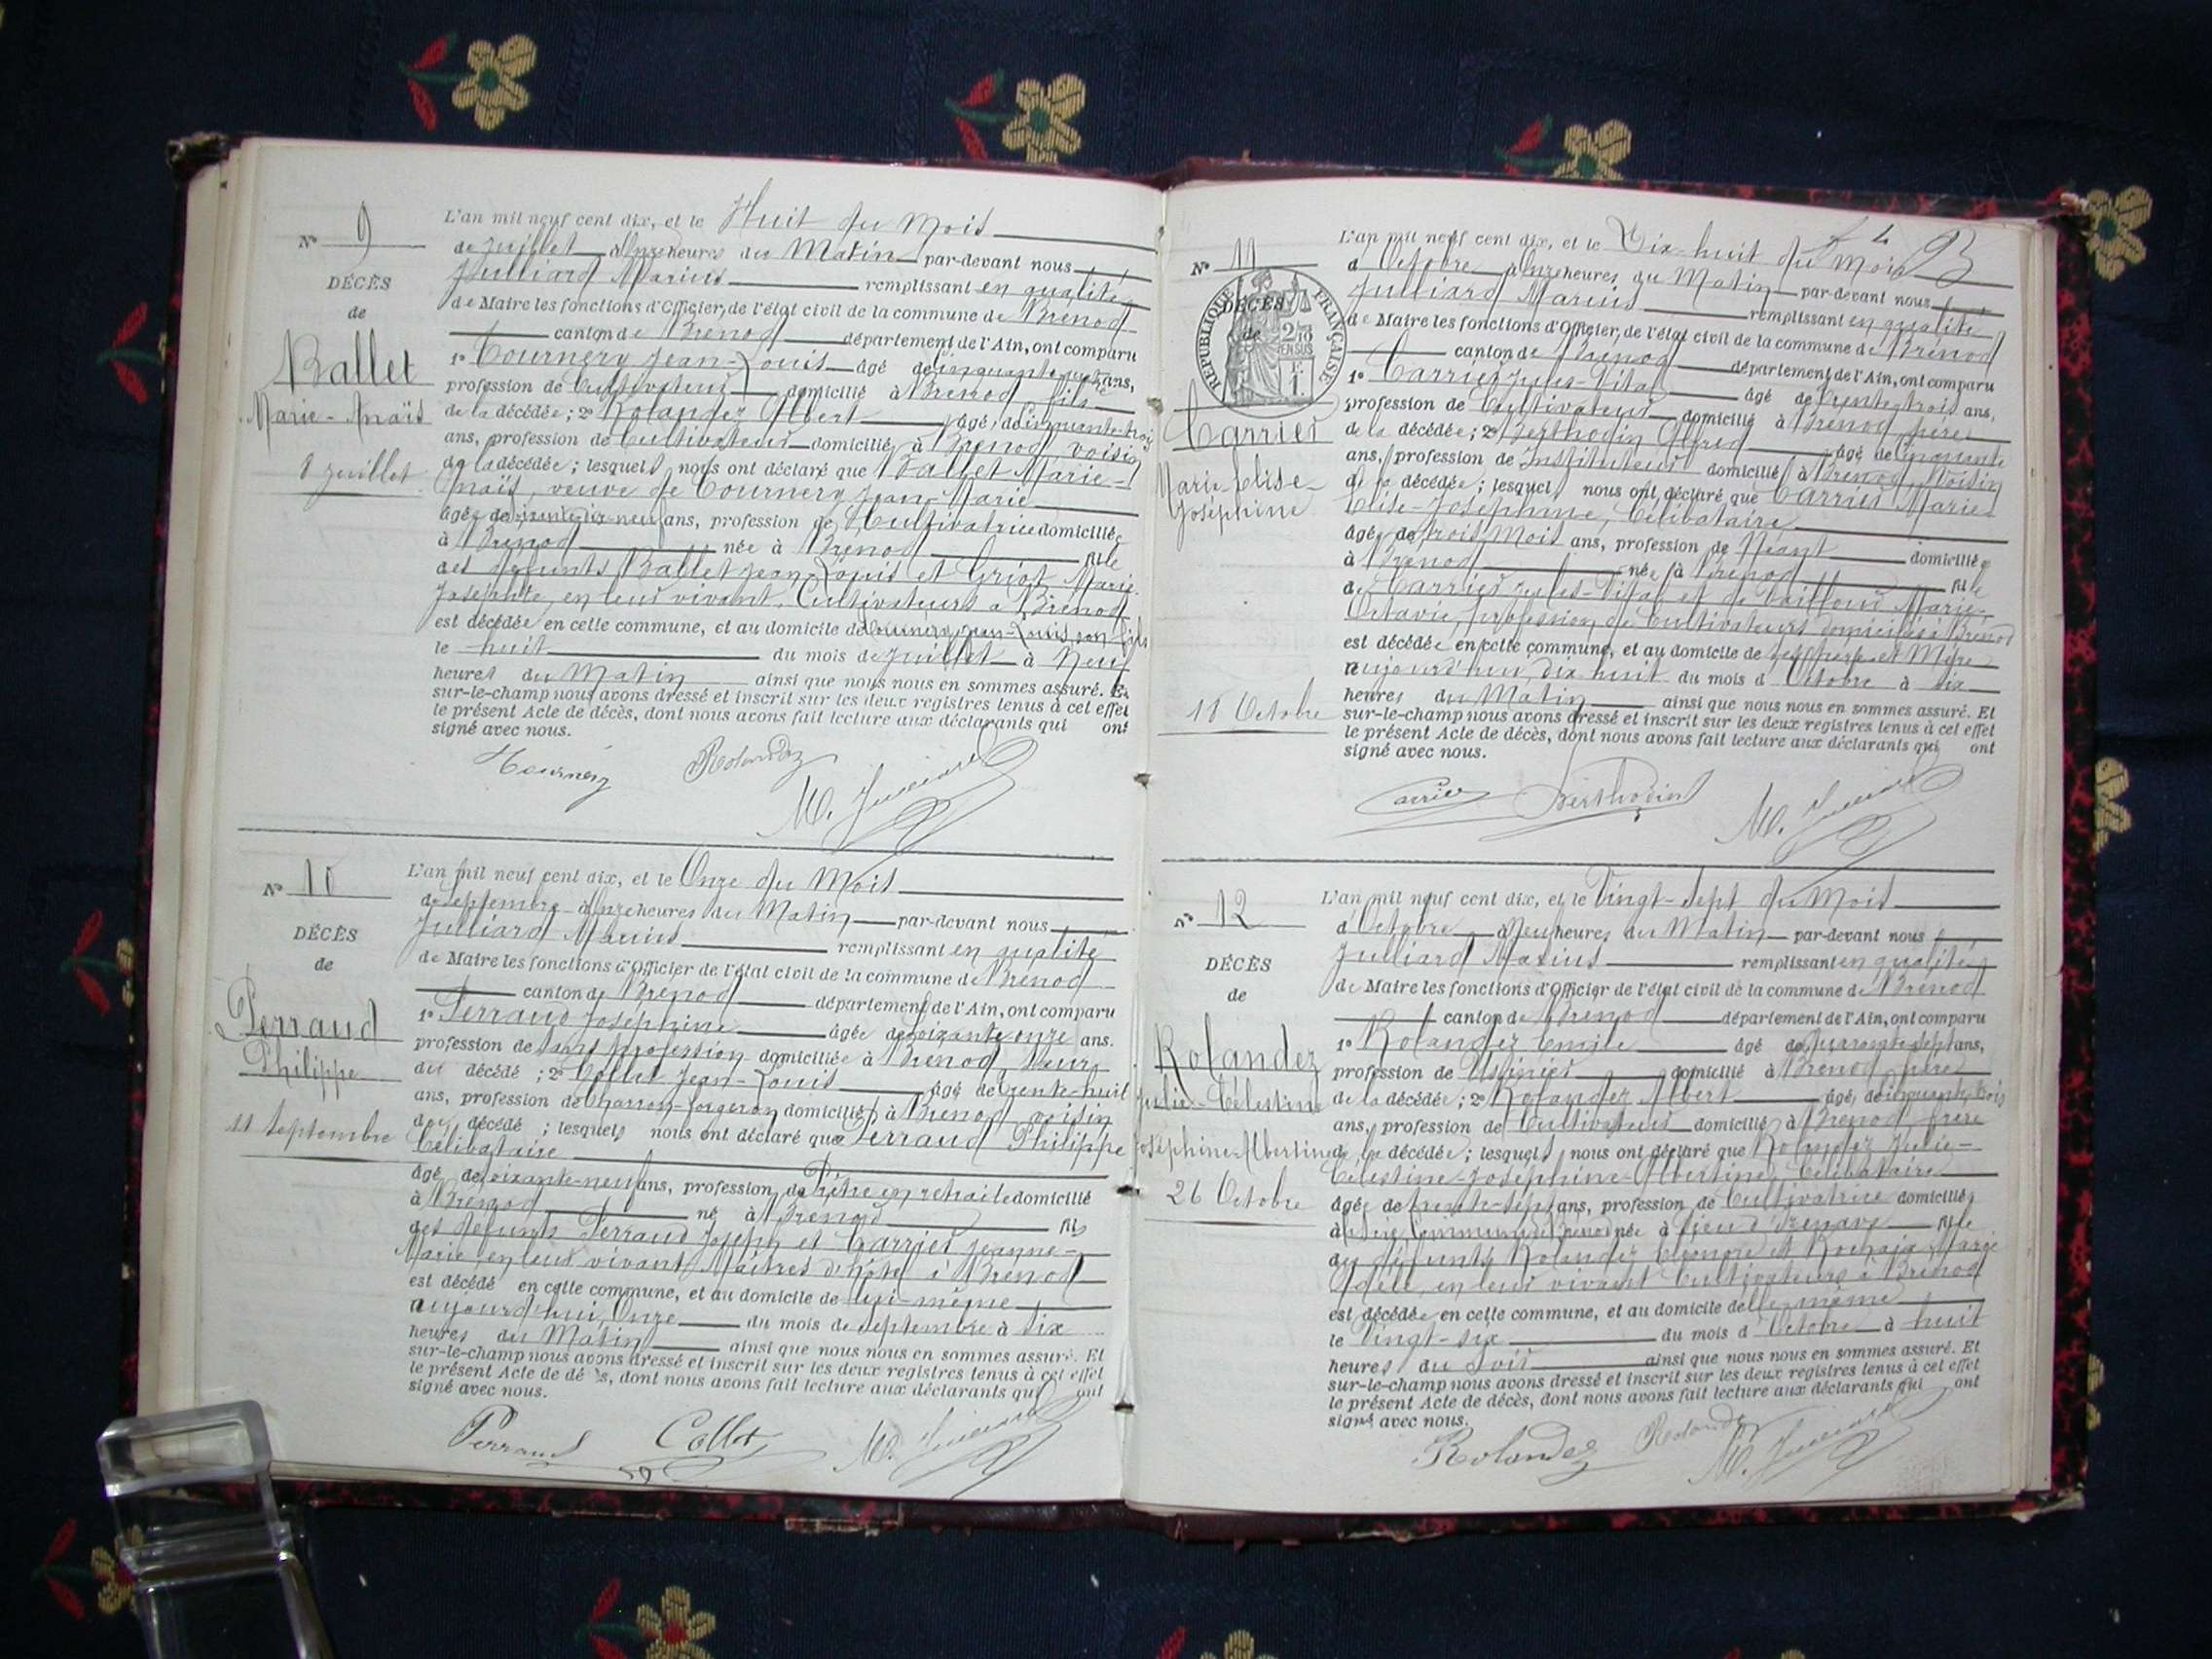 N° 9
DÉCÈS
de
Ballet
Marie-Anaïs
8 Juillet
L'an mil neuf cent dix, et le Huit du Mois
de Juillet à Onze heures du Matin par-devant nous
Julliard Marius remplissant en qualité
de Maire les fonctions d'Officier de l'état civil de la commune de Brénod
canton de Brénod département de l'Ain, ont comparu
1° Tournery Jean-Louis âgé de cinquante quatre ans,
profession de Cultivateur domicilié à Brénod fils
de la décédée ; 2° Rolandez Albert âgé de cinquante-trois
ans, profession de Cultivateur domicilié à Brénod, voisin
de la décédée ; lesquels nous ont déclaré que Ballet Marie-
Anaïs, veuve de Tournery Jean-Marie
âgée de soixante-dix-neuf ans, profession de Cultivatrice domiciliée
à Brénod née à Brénod fille
des défunts Ballet Jean-Louis et Griot Marie
Josephte, en leur vivant Cultivateurs à Brénod
est décédée en cette commune, et au domicile de Tournery Jean-Louis son fils
le huit du mois de Juillet à Neuf
heures du Matin ainsi que nous nous en sommes assuré. Et
sur-le-champ nous avons dressé et inscrit sur les deux registres tenus à cet effet
le présent Acte de décès, dont nous avons fait lecture aux déclarants qui ont
signé avec nous.
Tournery Rolandez
M. Julliard
N° 10
DÉCÈS
de
Perraud
Philippe
11 Septembre
L'an mil neuf cent dix, et le Onze du Mois
de Septembre à Onze heures du Matin par-devant nous
Julliard Marius remplissant en qualité
de Maire les fonctions d'Officier de l'état civil de la commune de Brénod
canton de Brénod département de l'Ain, ont comparu
1° Perraud Joséphine âgée de soixante onze ans.
profession de Sans profession domiciliée à Brénod Sœur
du décédé ; 2° Collet Jean-Louis âgé de trente-huit
ans, profession de Charron-forgeron domicilié à Brénod voisin
du décédé ; lesquels nous ont déclaré que Perraud Philippe
Célibataire
âgé de soixante-neuf ans, profession de Prêtre en retraite domicilié
à Brénod né à Brénod fils
des défunts Perraud Joseph et Carrier Jeanne-
Marie, en leur vivant Maîtres d'hôtel à Brénod
est décédé en cette commune, et au domicile de lui-même
aujourd'hui, Onze du mois de Septembre à dix
heures du Matin ainsi que nous nous en sommes assuré. Et
sur-le-champ nous avons dressé et inscrit sur les deux registres tenus à cet effet
le présent Acte de décès, dont nous avons fait lecture aux déclarants qui ont
signé avec nous.
Perraud Collet M. Julliard
N° 11
DÉCÈS
de
RÉPUBLIQUE FRANÇAISE
Carrier
Marie-Elise-
Joséphine
18 Octobre
L'an mil neuf cent dix, et le Dix-huit du Mois
d'Octobre à Onze heures du Matin par-devant nous
Julliard Marius remplissant en qualité
de Maire les fonctions d'Officier de l'état civil de la commune de Brénod
canton de Brénod département de l'Ain, ont comparu
1° Carrier Jules-Vital âgé de trente trois ans,
profession de Cultivateur domicilié à Brénod père
de la décédée ; 2° Berthodin Alfred âgé de cinquante
ans, profession de Instituteur domicilié à Brénod, Voisin
de la décédée ; lesquels nous ont déclaré que Carrier Marie-
Elise-Joséphine, Célibataire
âgée de trois Mois ans, profession de Néant domiciliée
à Brénod née à Brénod fille
de Carrier Jules-Vital et de Marie
Octavie, profession de Cultivateurs domiciliés à Brénod
est décédée en cette commune, et au domicile de ses père et Mère
aujourd'hui, Dix huit du mois d'Octobre à dix
heures du Matin ainsi que nous nous en sommes assuré. Et
sur-le-champ nous avons dressé et inscrit sur les deux registres tenus à cet effet
le présent Acte de décès, dont nous avons fait lecture aux déclarants qui ont
signé avec nous.
Carrier Berthodin M. Julliard
N° 12
DÉCÈS
de
Rolandez
Julie-Célestine
Joséphine-Albertine
26 Octobre
L'an mil neuf cent dix, et le Vingt-Sept du Mois
d'Octobre à Neuf heures du Matin par-devant nous
Julliard Marius remplissant en qualité
de Maire les fonctions d'Officier de l'état civil de la commune de Brénod
canton de Brénod département de l'Ain, ont comparu
1° Rolandez Emile âgé de quarante sept ans,
profession de Usinier domicilié à Brénod frère
de la décédée ; 2° Rolandez Albert âgé de cinquante trois
ans, profession de Cultivateur domicilié à Brénod frère
de la décédée ; lesquels nous ont déclaré que Rolandez Julie-
Célestine-Joséphine-Albertine, Célibataire
âgée de trente-sept ans, profession de Cultivatrice domiciliée
à Commune de Brénod née à fille
des défunts Rolandez et Marie
Adèle, en leur vivant Cultivateurs à Brénod
est décédée en cette commune, et au domicile de elle même
le Vingt-six du mois d'Octobre à huit
heures du Soir ainsi que nous nous en sommes assuré. Et
sur-le-champ nous avons dressé et inscrit sur les deux registres tenus à cet effet
le présent Acte de décès, dont nous avons fait lecture aux déclarants qui ont
signé avec nous.
Rolandez Rolandez M. Julliard